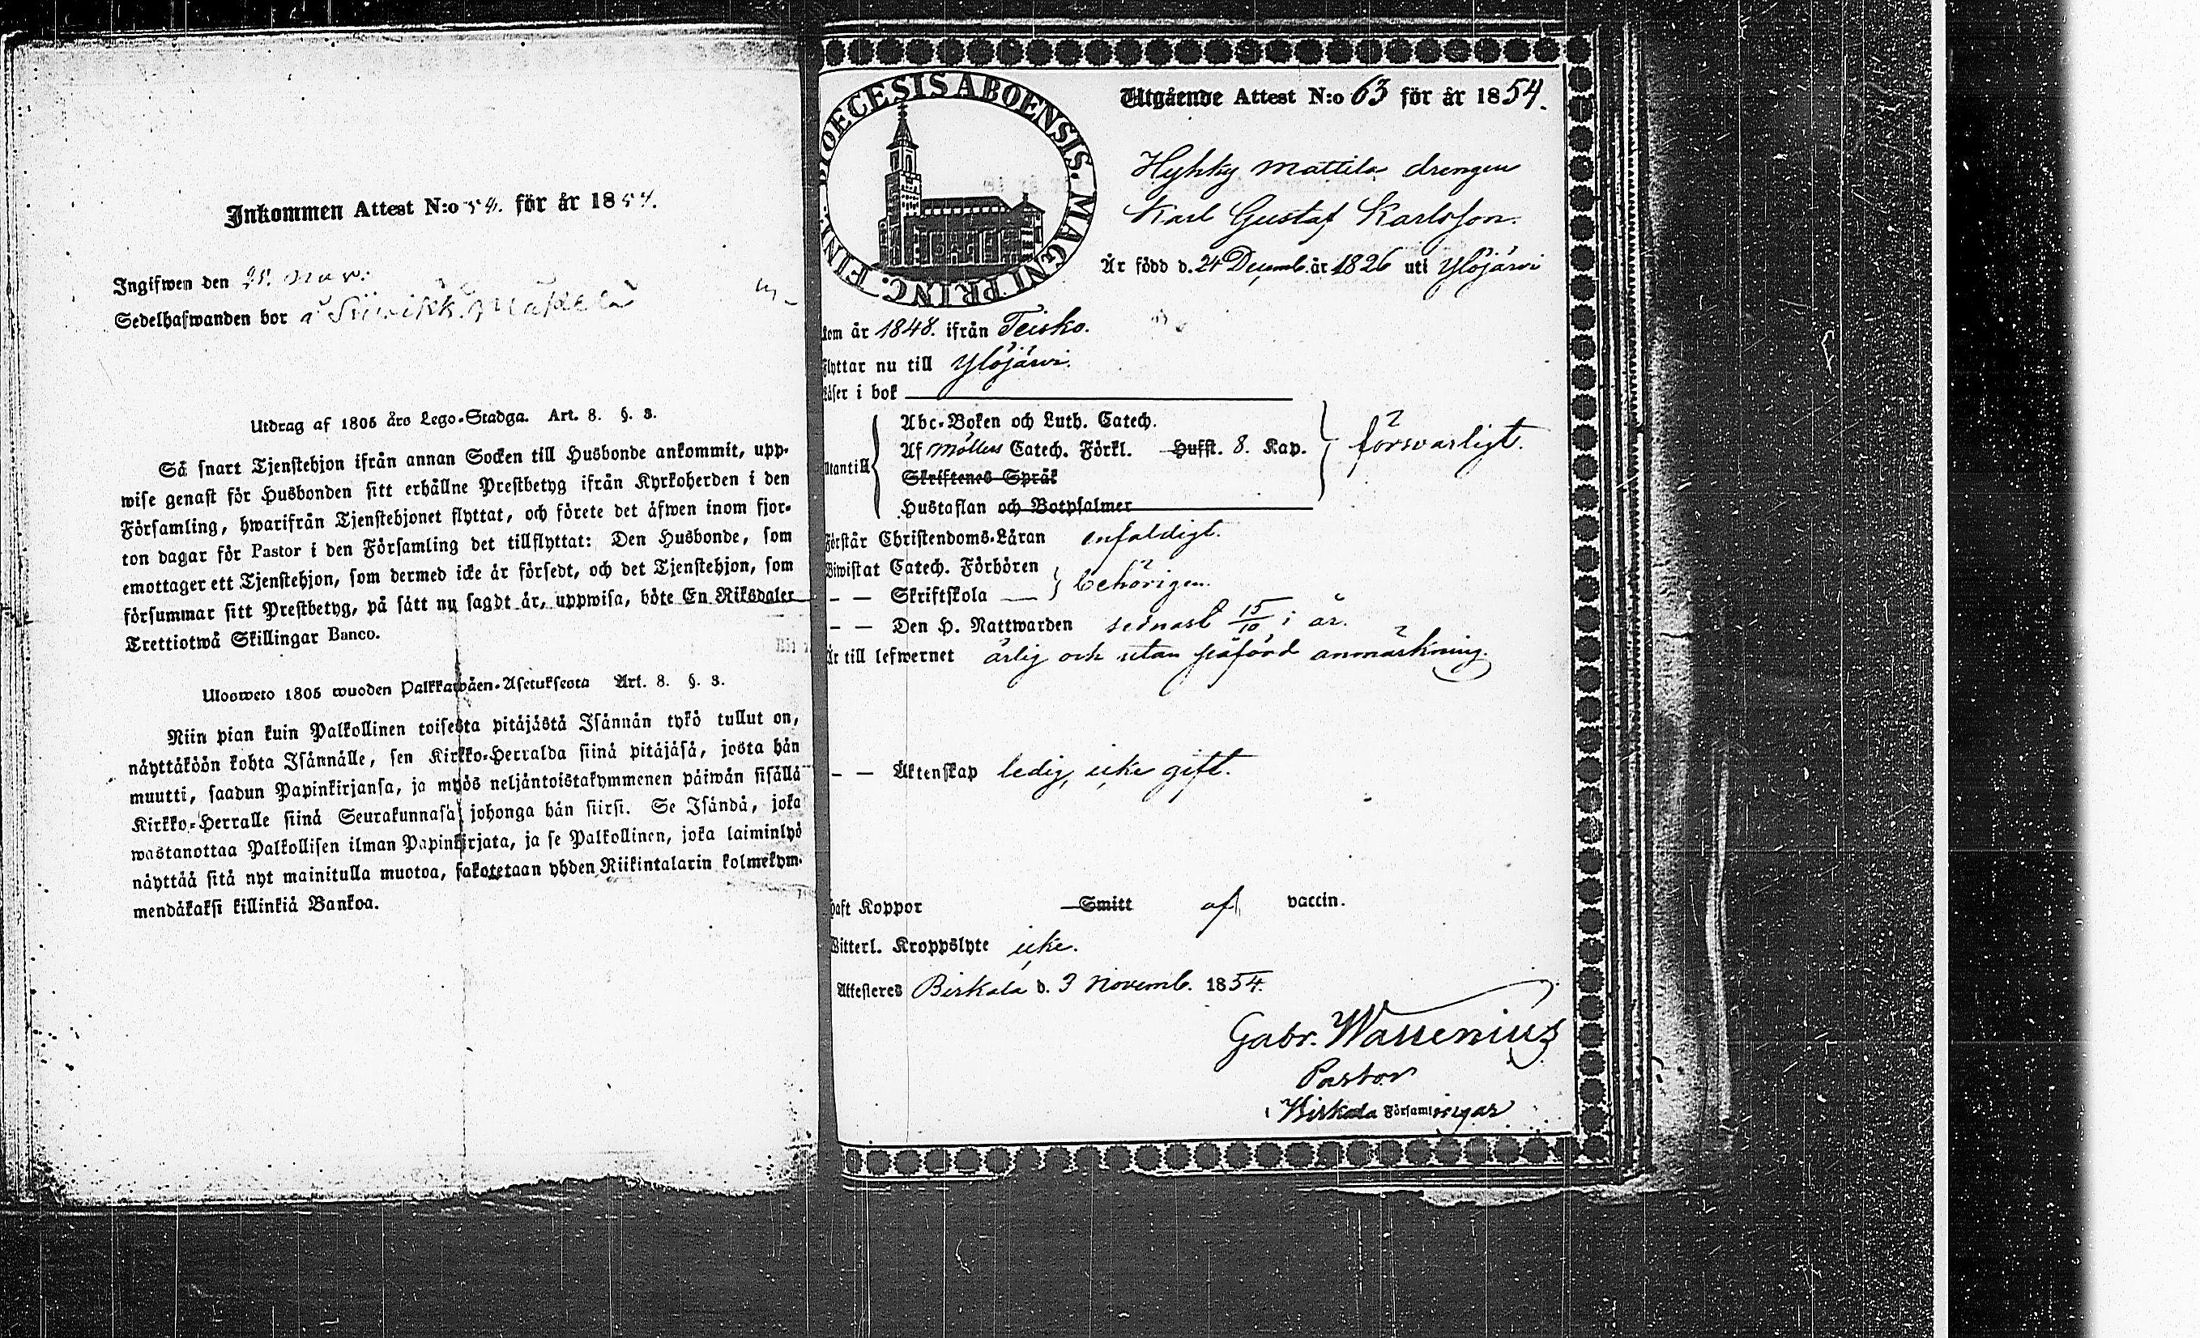 Inkommen Attest N:o 54. för år 1854.
Ingifwen den nov:
Sedelhafwanden bor å Mäkelä
Utdrag af 1805 års Lego-Stadga. Art. 8. §. 3.
Så snart Tjenstehjon ifrån annan Socken till Husbonde ankommit, upp-
wise genast för Husbonden sitt erhållne Prestbetyg ifrån Kyrkoherden i den
Församling, hwarifrån Tjenstehjonet flyttat, och förete det äfwen inom fjor-
ton dagar för Pastor i den Församling det tillflyttat: Den Husbonde, som
emottager ett Tjenstehjon, som dermed icke är försedt, och det Tjenstehjon, som
försummar sitt Prestbetyg, på sätt nu sagdt är, uppwisa, böte En Riksdaler
Trettiotwå Skillingar Banco.
Ulosweto 1805 wuoden Palkkawäen-Asetuksesta Art. 8. §. 3.
Niin pian kuin Palkollinen toisesta pitäjästä Isännän tykö tullut on,
näyttäköön kohta Isännälle, sen Kirkko-Herralda siinä pitäjäsä, josta hän
muutti, saadun Papinkirjansa, ja myös neljäntoistakymmenen päiwän sisällä
Kirkko-Herralle siinä Seurakunnasa johonga hän siirsi. Se Isändä, joka
wastanottaa Palkollisen ilman Papinkirjata, ja se Palkollinen, joka laiminlyö
näyttää sitä nyt mainitulla muotoa, sakotetaan yhden Riikintalarin kolmekym-
mendäkaksi killinkiä Bankoa.
DIOECESIS ABOENSIS. MAGNI PRINC. FINL.
Utgående Attest N:o 63 för år 1854.
Hyhky Mattila drengen
Karl Gustaf Karlsson.
Är född d. 24 Decemb. år 1826 uti Ylöjärvi
Kom år 1848. ifrån Teisko.
Flyttar nu till Ylöjärvi.
Läser i bok
Abc-Boken och Luth. Catech.
Utantill Af Möllers Catech. Förkl. Husst. 8. Kap. försvarligt.
Skriftenes Språk
Hustaflan och Botpsalmer
Förstår Christendoms-Läran enfaldigt.
Biwistat Catech. Förhören
– – Skriftskola behörigen.
– – Den H. Nattwarden sednast 15/10 i år.
Är till lefwernet ärlig och utan påförd anmärkning.
– – Äktenskap ledig, icke gift.
haft Koppor Smitt af vaccin.
Witterl. Kroppslyte icke.
Attesteres Birkala d. 3 Novemb. 1854.
Gabr. Wallenius
Pastor
i Birkala Församlingar